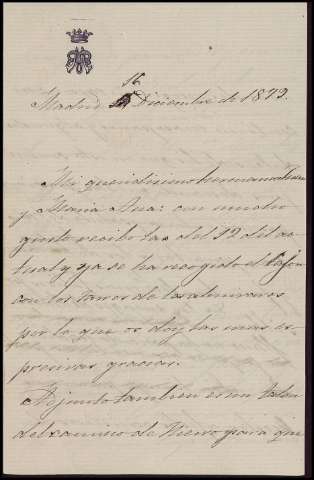 16
Madrid Diciembre de 1879.
Mi queridisimo hermano
y Maria Ana: con mucho
gusto recibo las del 12 del ac-
tual y ya se ha recogido el Cajon
con los tarros de las almivares
por lo que os doy las mas es-
presivas gracias.
Adjunto tambien es un talon
del camino de Hierro para que